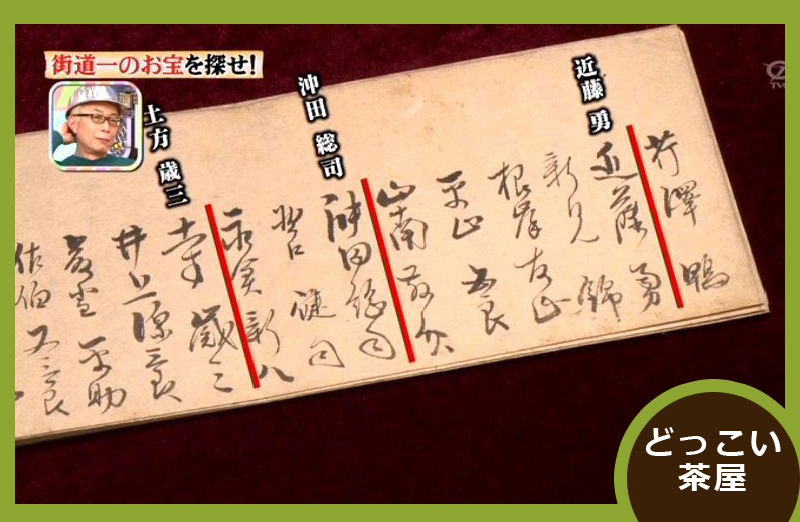 街道一のお宝を探せ!
近藤 勇
沖田 総司
土方 歳三
芹澤 鴨
近藤 勇
新見 錦
根岸友山
平山 五良
山南 敬介
沖田総司
野口 健司
永倉 新八
土方 歳三
井上源三良
藤堂 平助
佐伯又三良
どっこい
茶屋